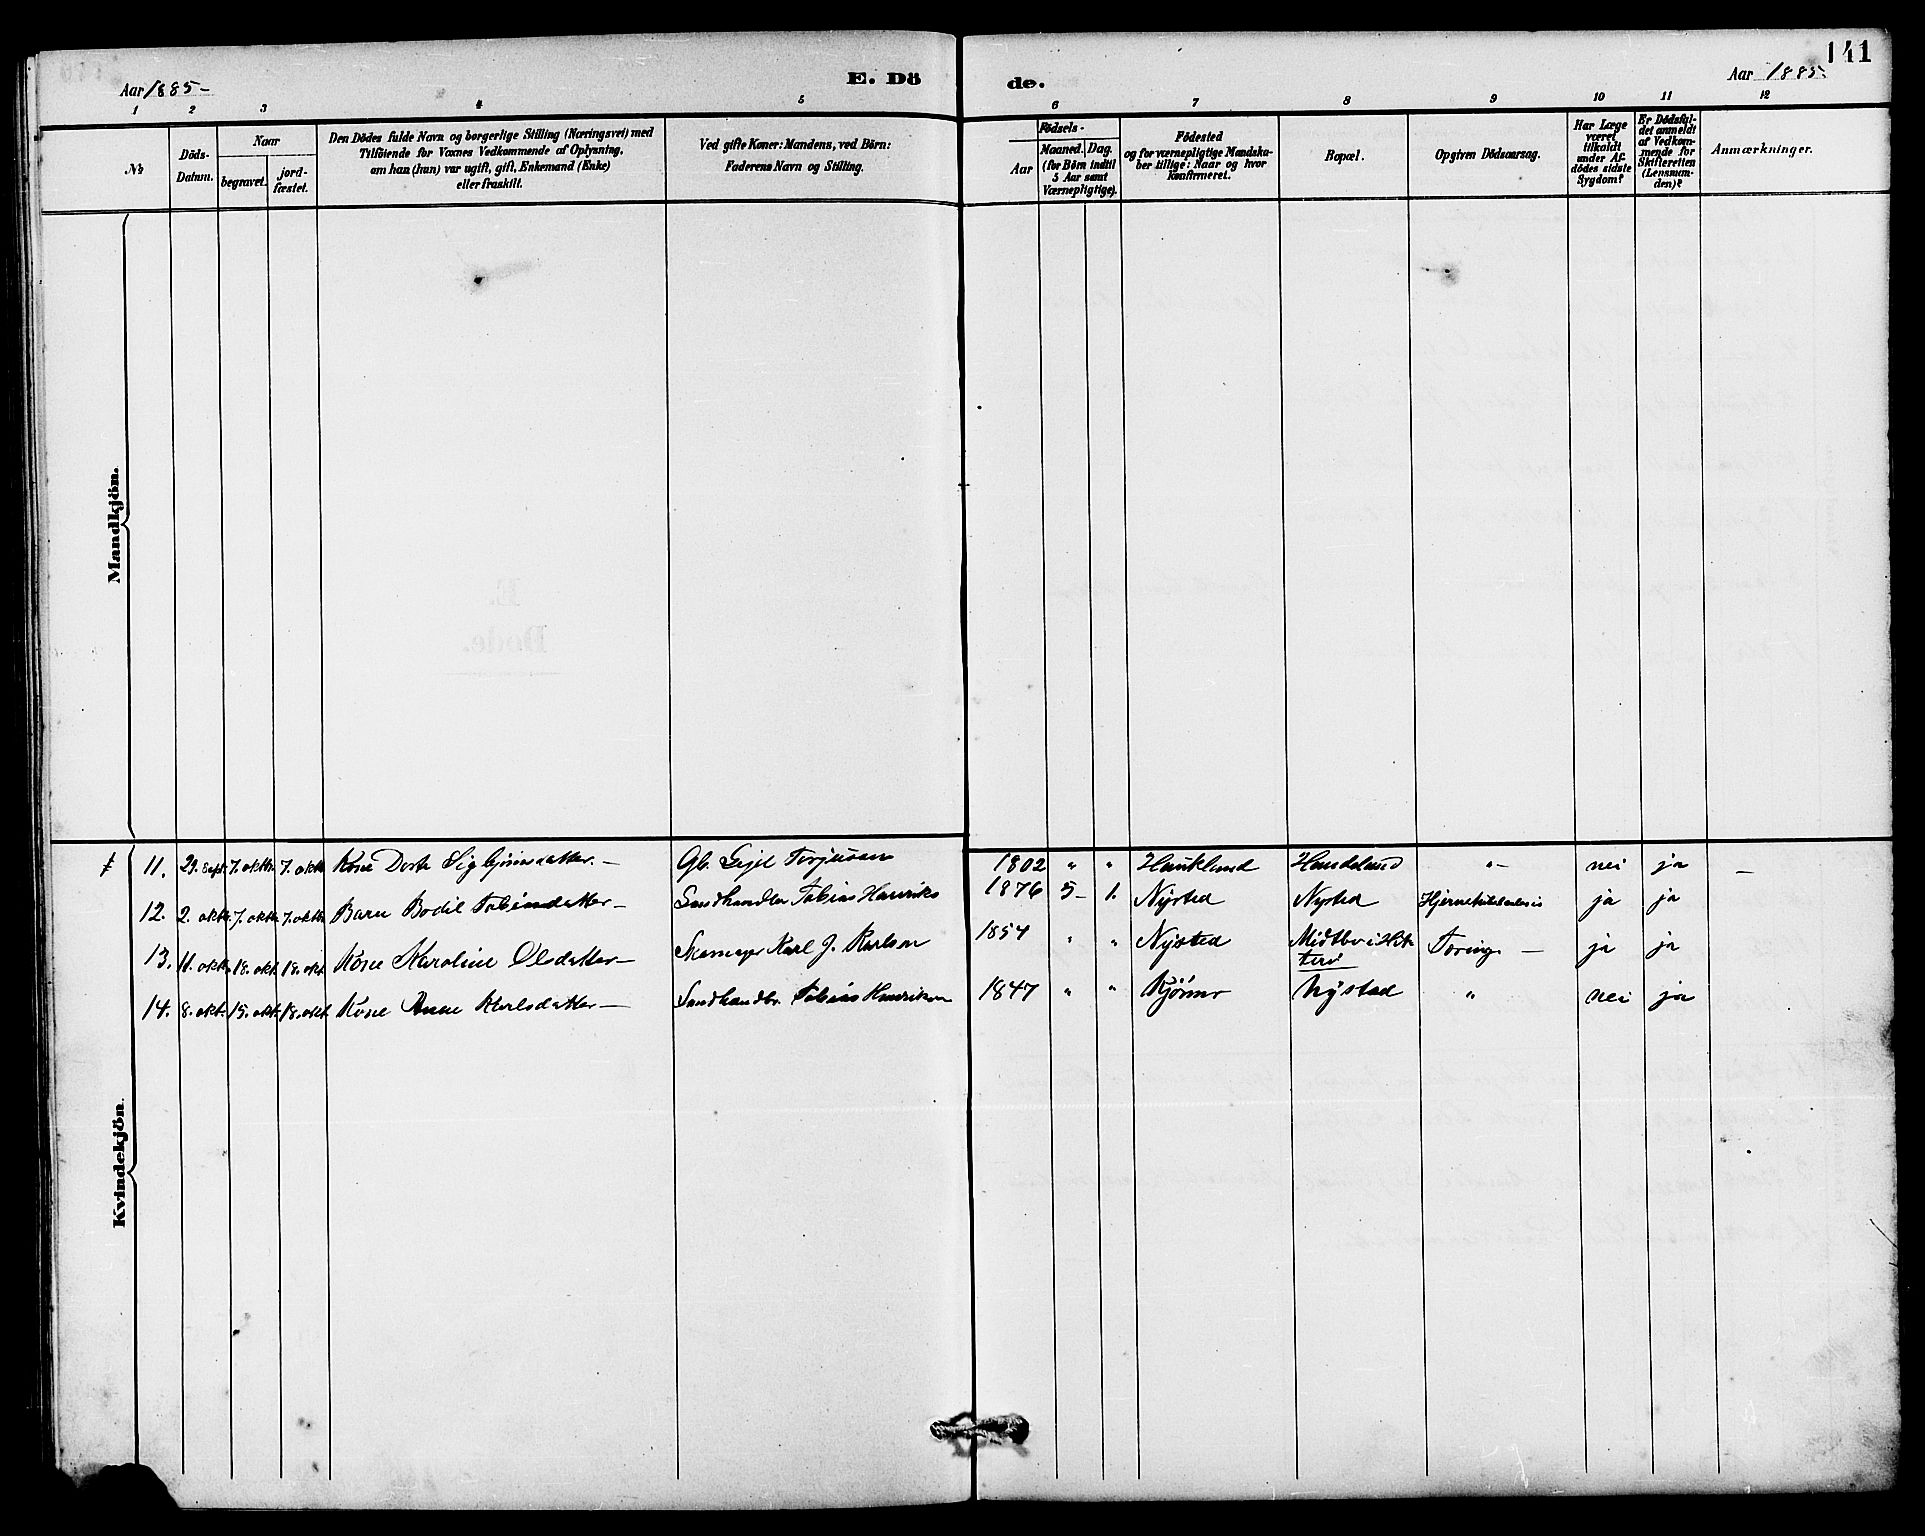 141
Aar 1885-
E. Dö
de.
Aar 1885.
1 2 3 4 5 6 7 8 9 10 11 12
№
Döds-
Datum.
Naar
begravet.
jord-
fæstet.
Den Dödes fulde Navn og borgerlige Stilling (Næringsvei) med
Tilföiende for Voxnes Vedkommende af Oplysning,
om han (hun) var ugift, gift, Enkemand (Enke)
eller fraskilt.
Ved gifte Koner: Mandens, ved Börn:
Faderens Navn og Stilling.
Födsels-
Aar
Maaned.
Dag.
(for Börn indtil
5 Aar samt
Værnepligtige).
Födested
og for værnepligtige Mandska-
ber tillige: Naar og hvor
konfirmeret.
Bopæl.
Opgiven Dödsaarsag.
Har Læge
været
tilkaldt
under Af-
dödes sidste
Sygdom?
Er Dödsfal-
det anmeldt
af Vedkom-
mende for
Skifteretten
(Lensman-
den)?
Anmærkninger.
Mandkjön.
Kvindekjön.
11. 29. Sept. 7. oktb. 7. oktb. Kone Dorte Sigbjørnsdatter. - Gb. Terjesen 1802 " " Hauklund " - nei ja -
12. 2. oktb. 7. oktb. 7. oktb. Barn Bodil Tobiasdatter - Sandhandler Tobias Henriks 1876 5- 1. Nysted Nysted ja ja
13. 11. oktb. 18. okt. 18. okt. Kone Karoline Olsdatter - Skomager Karl J. Karlsen 1854 " " Nysted Midtbø i Hit-
terø Tæring - ja ja
14. 8. okt. 15. okt. 18. okt. Kone Anne Karlsdatter - Sandhandlr. Tobias Henriksen 1847 " " Nysted " nei ja